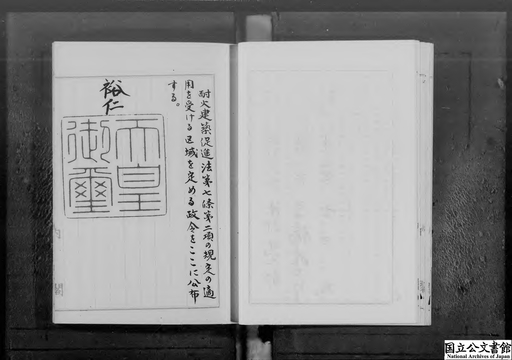 耐火建築促進法第七條第二項の規定の適
用を受ける区域を定める政令をここに公布
する。
裕仁
天皇
御璽
国立公文書館
National Archives of Japan